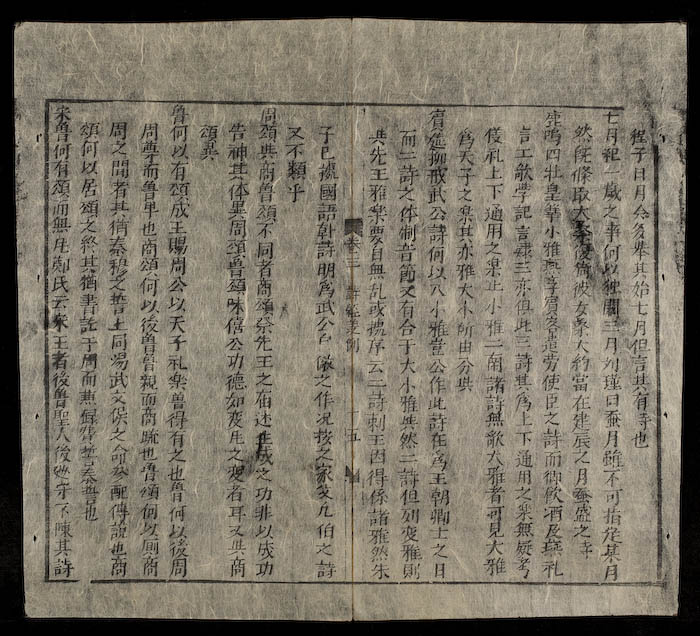 程子曰月令多舉其始七月但言其有寺也
七月紀一歲之事何以独闕三月刘瑾曰蚕月雖不可指定某月
然既條取大桑後倚彼女桑大約當在建辰之月蚕盛之寺
鹿鳴四牡皇華小雅燕享賓客遣劳使臣之詩而御飲酒及燕礼
言工歌学記言肄三亦但此三詩其為上下通用之楽無疑考
儀礼上下通用之楽止小雅二南諸詩無歌大雅者可見大雅
為天子之楽其亦雅大小所由分与
賓筵抑戒武公詩何以入小雅豈公作此詩在為王朝卿士之日
而二詩之体制音節又有合于大小雅与然二詩但列变雅則
与先王雅楽要自無乱或據序云二詩刺王因得係諸雅然朱
卷三 詩經 十五
子已據國語韓詩明為武公自儆之作况按之家父凡伯之詩
又不類乎
周頌与商魯頌不同者商頌祭先王之庙述生成之功非以成功
告神其体異周頌魯頌咏僖公功德如变雅之变者耳又与商
頌異
魯何以有頌成王賜周公以天子礼楽魯得有之也魯何以後周
周尊而魯卑也商頌何以後魯魯親而商疏也魯頌何以厠商
周之間者其猶秦穆之誓上同湯武文侯之命参配傅說也商
頌何以居頌之終其猶書訖于周而兼録費誓秦誓也
宋魯何有頌而無风鄭氏云宋王者後魯聖人後巡守不陳其詩